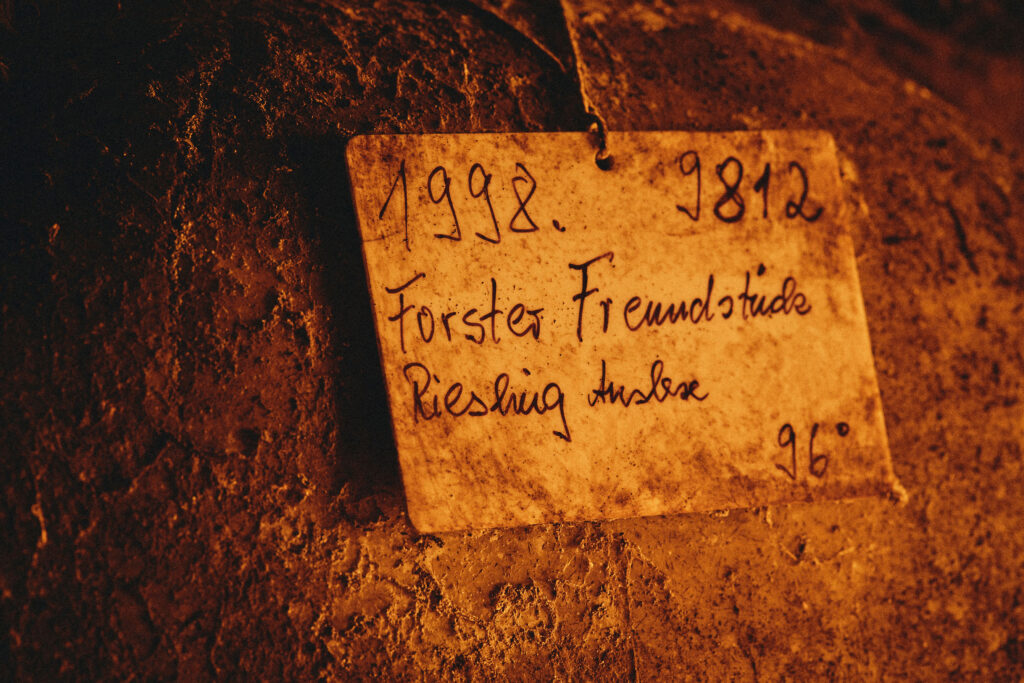 1998. 9812
Forster Freundstück
Riesling Auslese
96°